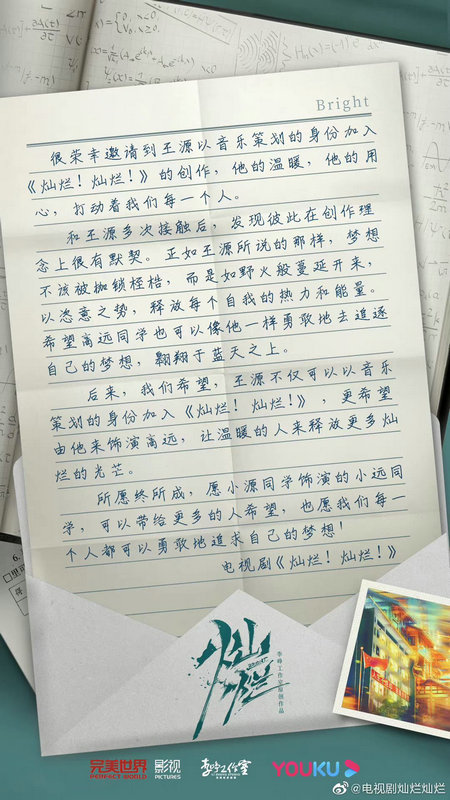 Bright
很荣幸邀请到王源以音乐策划的身份加入
《灿烂！灿烂！》的创作，他的温暖，他的用
心，打动着我们每一个人。
和王源多次接触后，发现彼此在创作理
念上很有默契。正如王源所说的那样，梦想
不该被枷锁桎梏，而是如野火般蔓延开来，
以恣意之势，释放每个自我的热力和能量。
希望高远同学也可以像他一样勇敢地去追逐
自己的梦想，翱翔于蓝天之上。
后来，我们希望，王源不仅可以以音乐
策划的身份加入《灿烂！灿烂！》，更希望
由他来饰演高远，让温暖的人来释放更多灿
烂的光芒。
所愿终所成，愿小源同学饰演的小远同
学，可以带给更多的人希望，也愿我们每一
个人都可以勇敢地追求自己的梦想！
电视剧《灿烂！灿烂！》
灿烂
李峰工作室原创作品
完美世界 影视
PERFECT WORLD PICTURES
李峰工作室
YOUKU
@电视剧灿烂灿烂